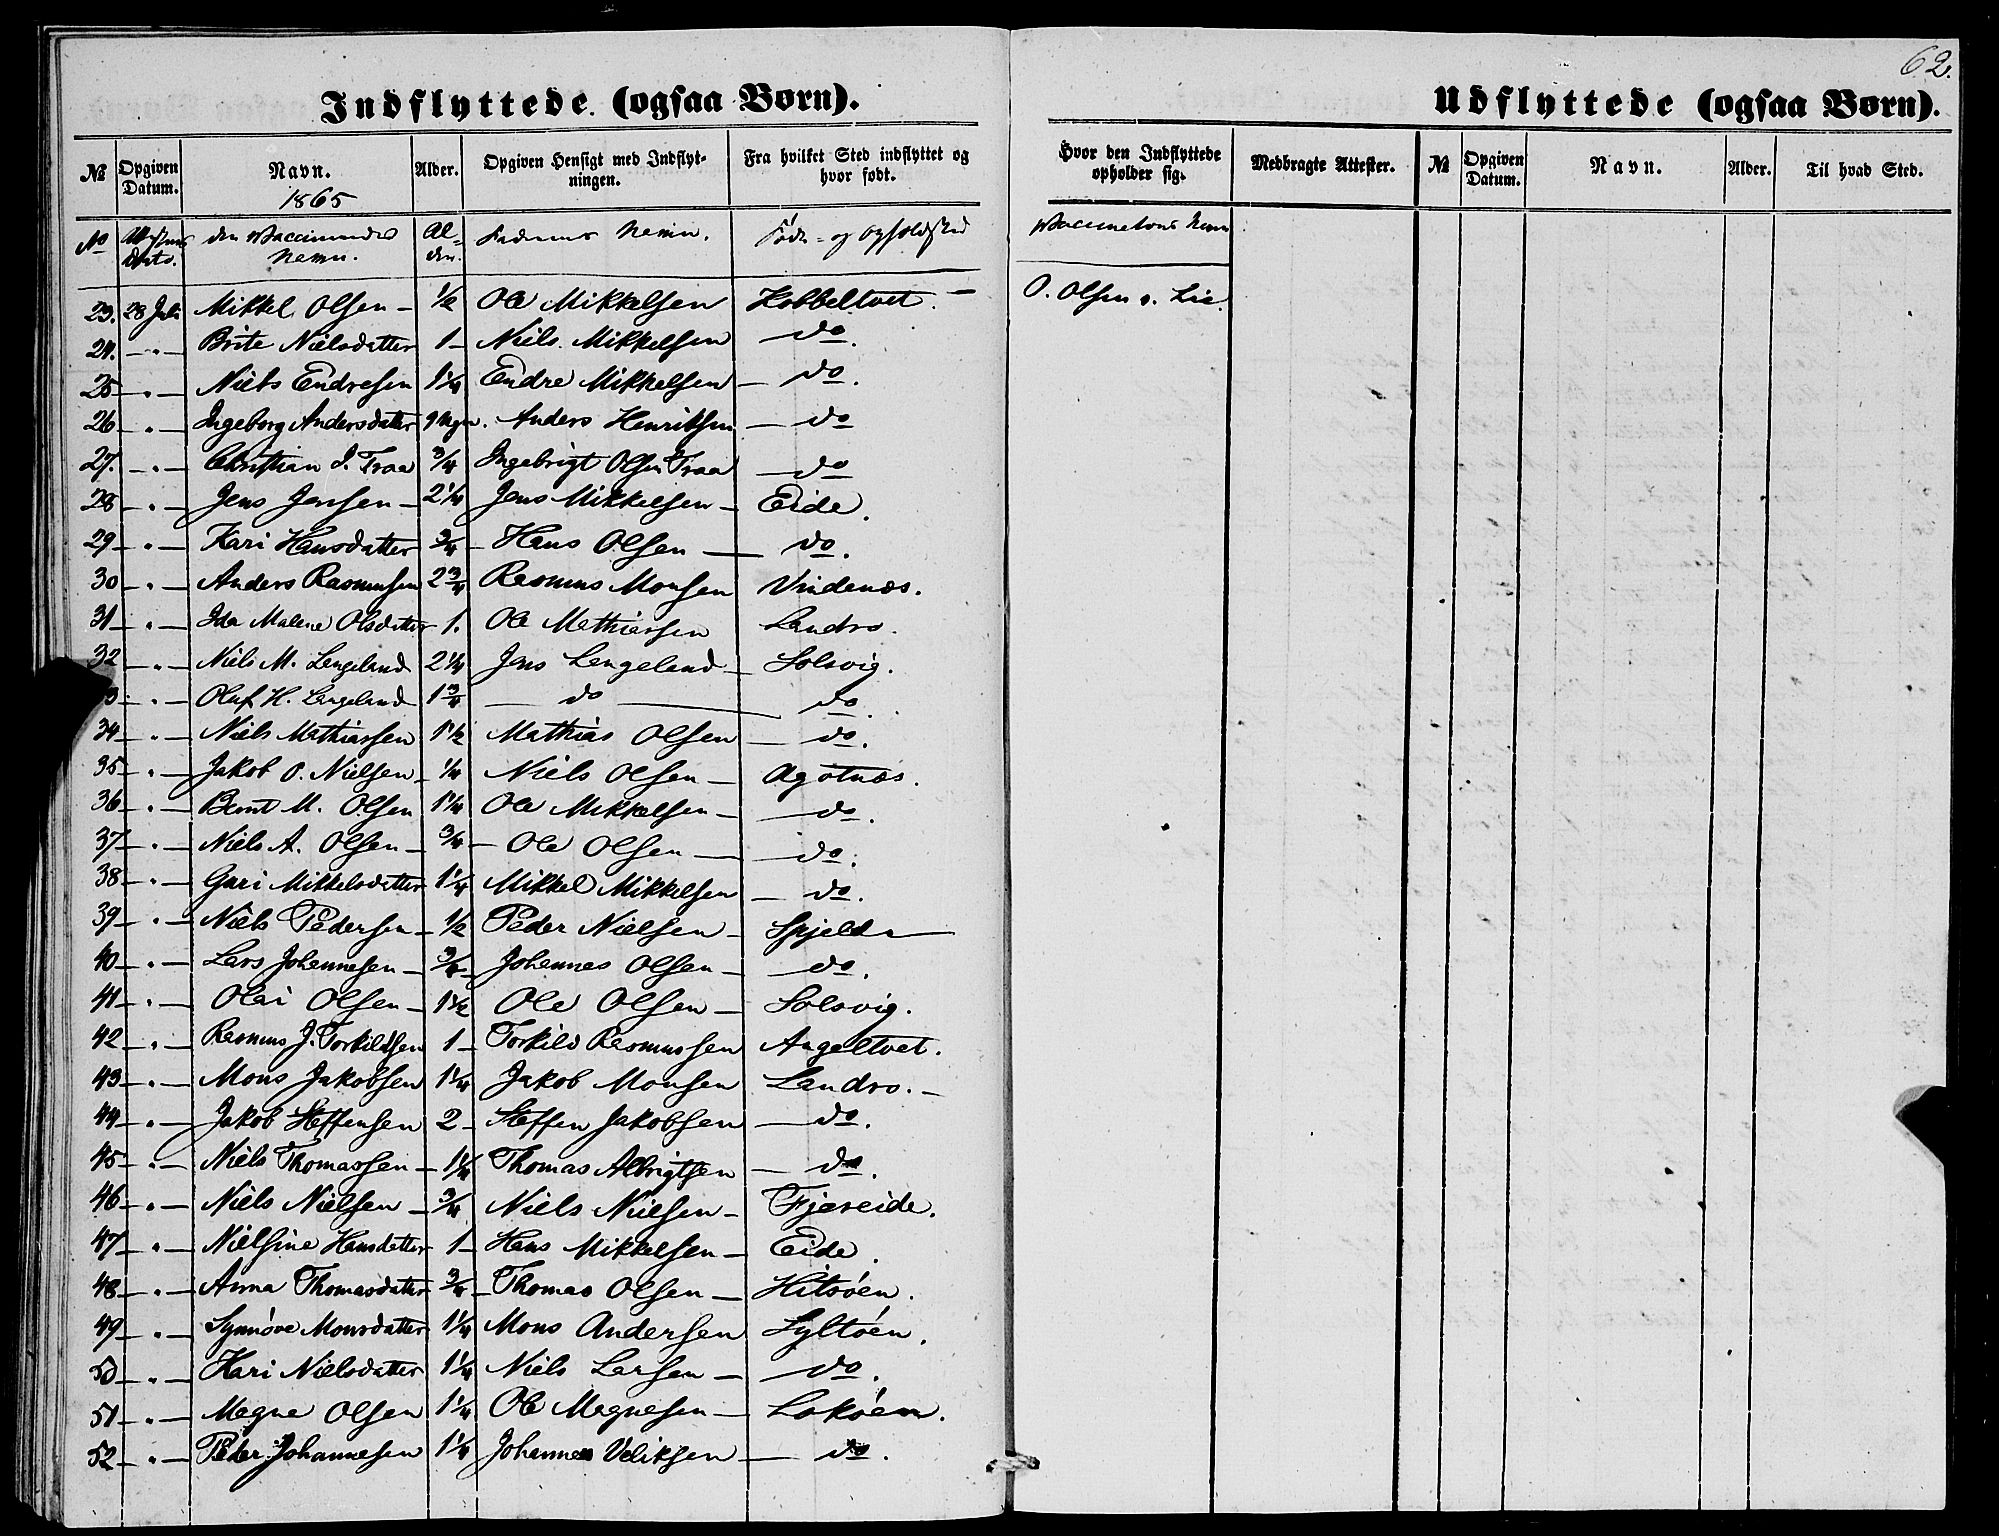 62.
Indflyttede (ogsaa Børn).
Udflyttede (ogsaa Børn).
№ | Opgiven Datum. | Navn. | Alder. | Opgiven Hensigt med Indflytningen. | Fra hvilket Sted indflyttet og hvor født. | Hvor den Indflyttede opholder sig. | Medbragte Attester. | № | Opgiven Datum. | Navn. | Alder. | Til hvad Sted.
1865
No | Dato. | den Vaccineredes Navn. | Alder. | Faderens Navn. | Føde- og Opholdsted | Vaccinateurs Navn
23. | 28 Juli | Mikkel Olsen – | 1/2 | Ole Mikkelsen | Kobbeltvet. – | O. Olsen v. Lie.
24. | – " – | Brite Nielsdatter | 1 – | Niels Mikkelsen | do.
25 | – " – | Niels Endresen | 1 1/4 | Endre Mikkelsen | – do.
26 | – " – | Ingeborg Andersdatter | 9 Ugr. | Anders Henriksen | – do
27. | – " – | Christian I. Traa | 3/4 | Ingebrigt Olsen Traa | – do
28 | – " – | Jens Jensen – | 2 1/4 | Jens Mikkelsen – | Eide.
29 | – " – | Kari Hansdatter | 3/4 | Hans Olsen – | do.
30 | – " – | Anders Rasmussen | 2 3/4 | Rasmus Monsen | Vindenæs.
31 | – " – | Ida Malene Olsdatter | 1. | Ole Mathiassen | Landro.
32 | – " – | Niels M. Lengeland | 2 1/4 | Jens Lengeland – | Solsvig.
3 | – " – | Oluf H. Lengeland | 1 3/4 | – do – | do.
34 | – " – | Niels Mathiassen | 1 1/2 | Mathias Olsen | – do.
35 | – " – | Jakob O. Nielsen | 1/4 | Niels Olsen – | Agotnæs.
36 | – " – | Bernt M. Olsen | 1 1/4 | Ole Mikkelsen – | do.
37 | – " – | Niels A. Olsen – | 3/4 | Ole Olsen – | do.
38 | – " – | Guri Mikkelsdatter | 1 1/4 | Mikkel Mikkelsen | – do.
39 | – " – | Niels Pedersen – | 1/2 | Peder Nielsen – | Spjeld –
40 | – " – | Lars Johannesen – | 3/4 | Johannes Olsen – | do.
41 | – " – | Olai Olsen – | 1 1/2 | Ole Olsen – | Solsvig.
42 | – " – | Rasmus J. Torkildsen | 1 – | Torkild Rasmussen | Angeltvet.
43 | – " – | Mons Jakobsen | 1 1/4 | Jakob Monsen | Landro. –
44 | – " – | Jakob Steffensen | 2 – | Steffen Jakobsen | – do.
45 | – " – | Niels Thomassen – | 1 1/4 | Thomas Albrigtsen | – do.
46 | – " – | Niels Nielsen – | 3/4 | Niels Nielsen – | Fjæreide.
47 | – " – | Nielsine Hansdatter | 1 – | Hans Mikkelsen – | Eide.
48 | – " – | Anna Thomasdatter | 3/4 | Thomas Olsen – | Hitsöen.
49 | – " – | Synnöve Monsdatter | 1 1/4 | Mons Andersen | Syltöen.
50 | – " – | Kari Nielsdatter | 1 1/4 | Niels Larsen – | do.
51 | – " – | Magne Olsen | 1 1/4 | Ole Magnesen – | Loköen.
52 | – " – | Peder Johannesen | 1 1/4 | Johannes Veliksen | – do.